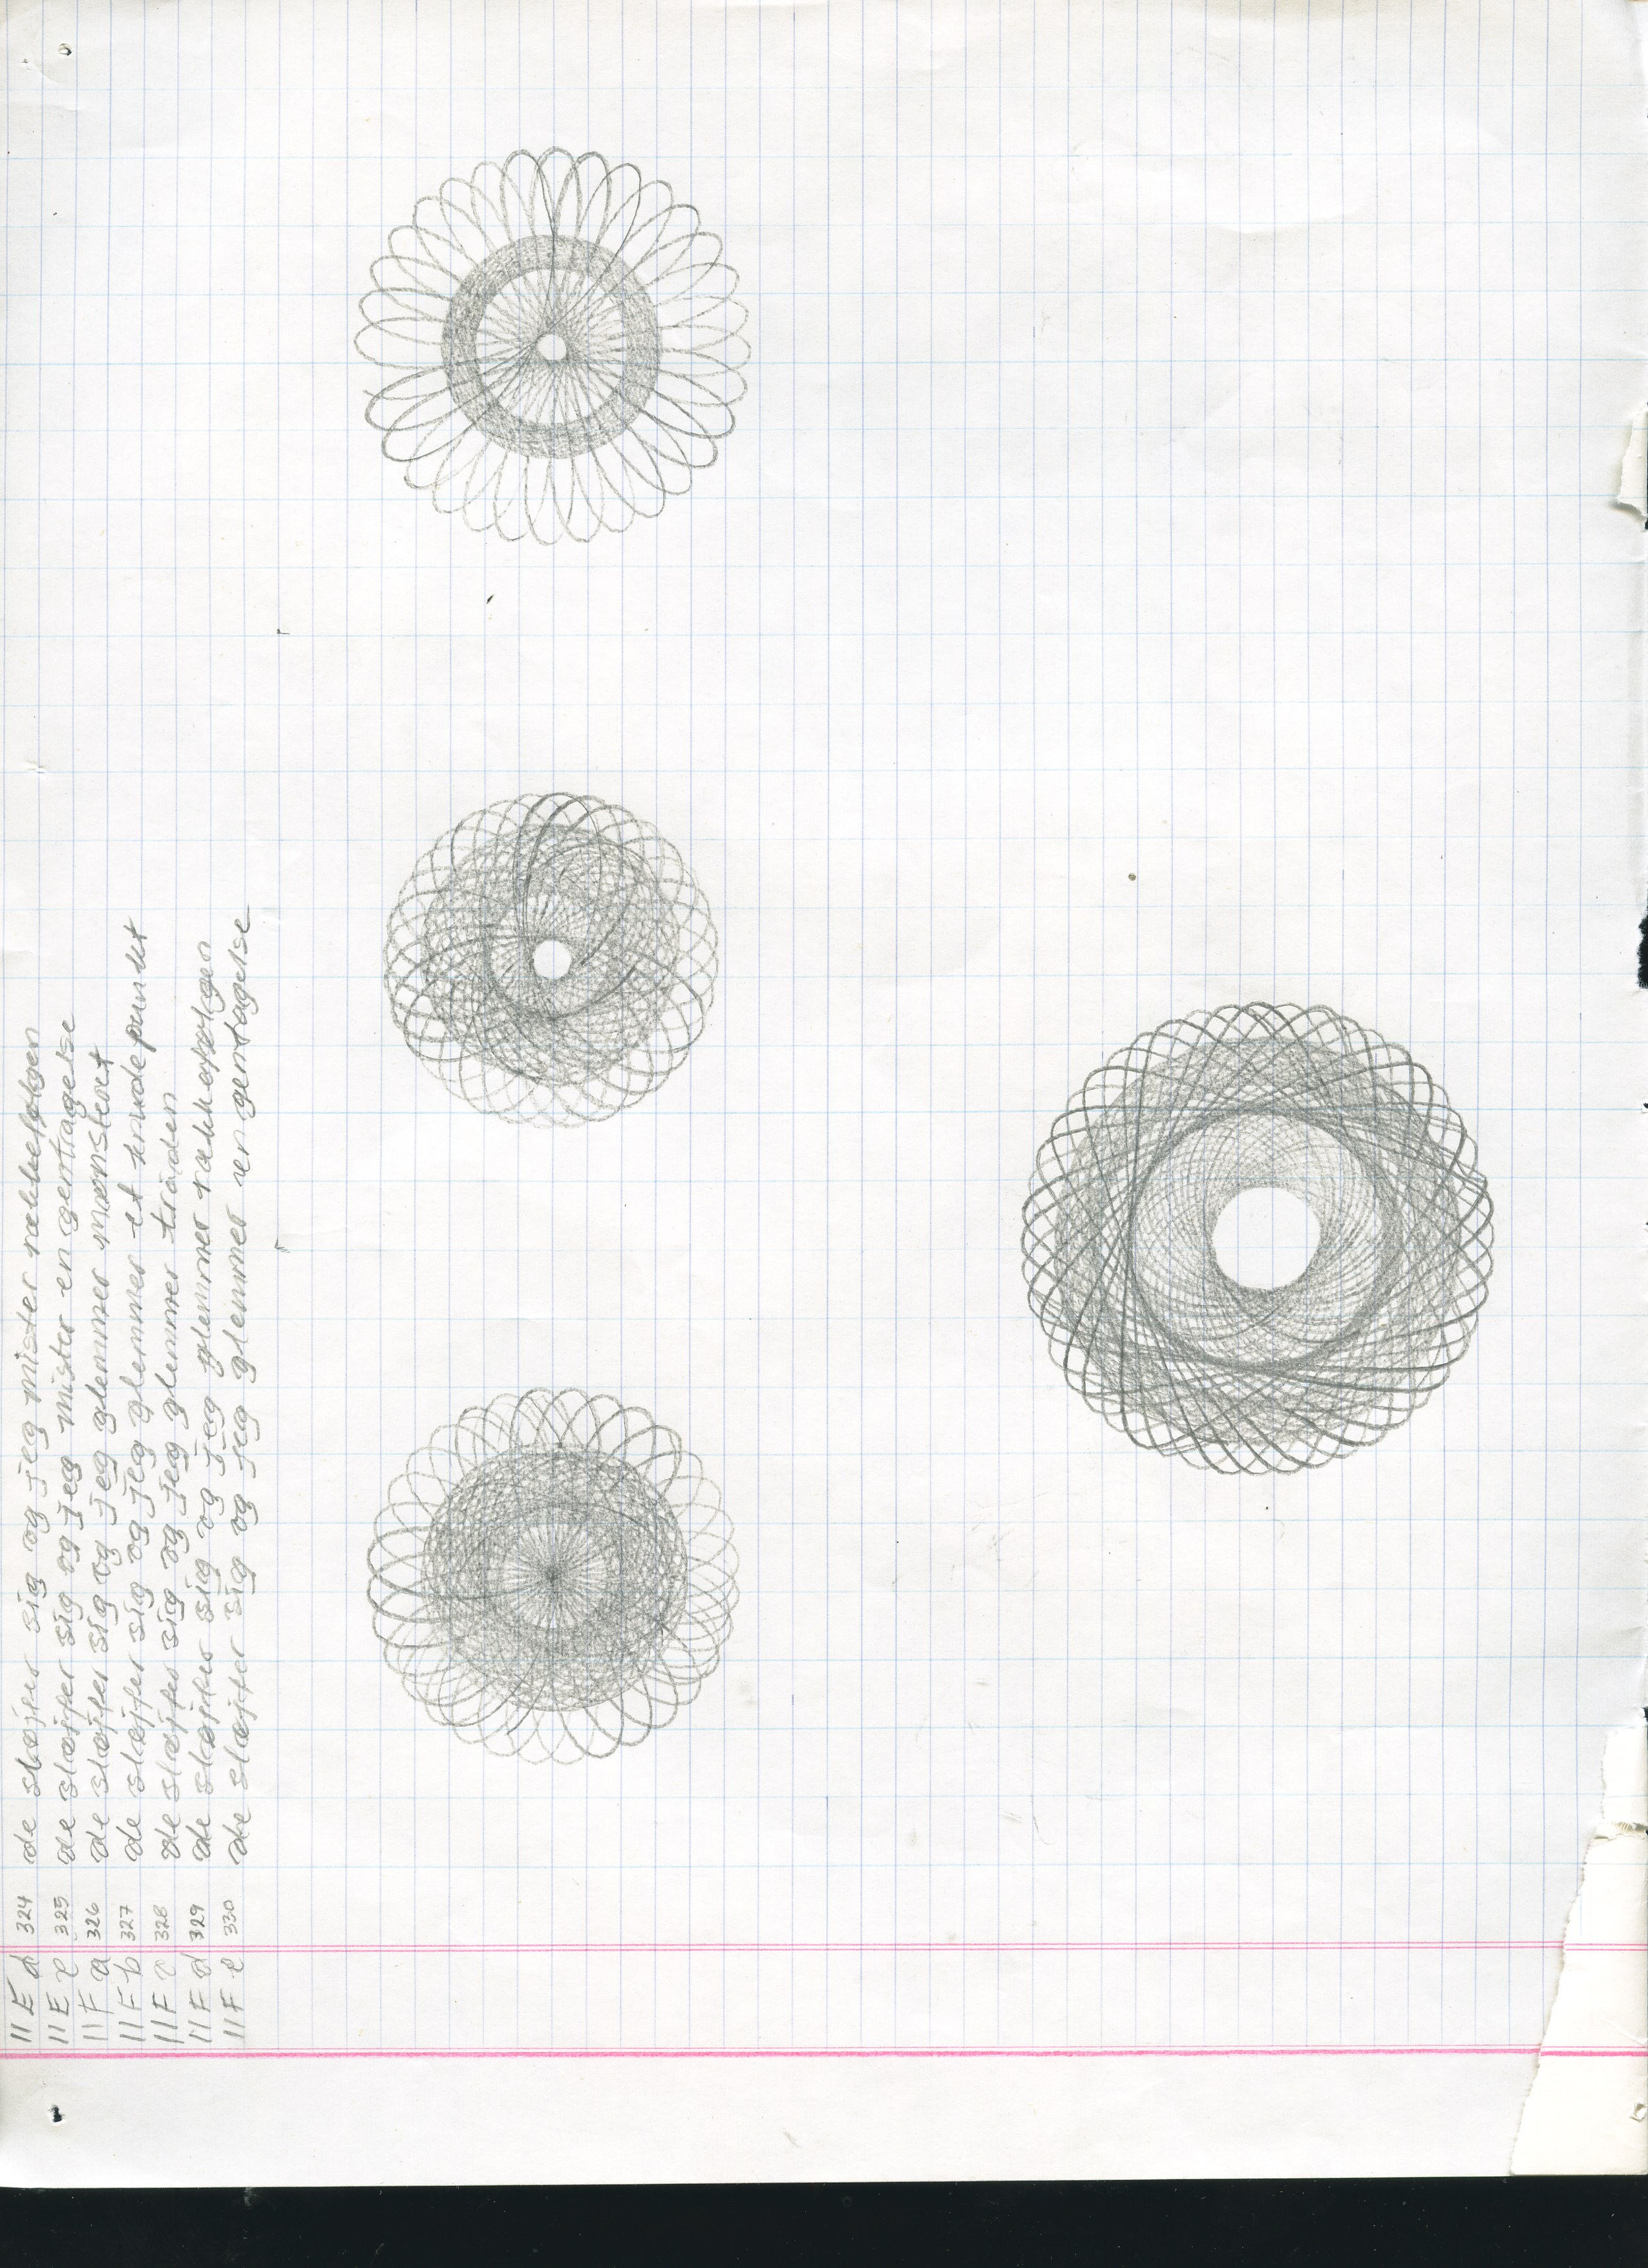 11 E d 324 de sløjfer sig og jeg mister rækkefølgen
11 E e 325 de sløjfer sig og jeg mister en gentragelse
11 F a 326 de sløjfer sig og jeg glemmer mønsteret
11 F b 327 de sløjfer sig og jeg glemmer et knudepunkt
11 F c 328 de sløjfer sig og jeg glemmer tråden
11 F d 329 de sløjfer sig og jeg glemmer rækkefølgen
11 F e 330 de sløjfer sig og jeg glemmer en gentagelse